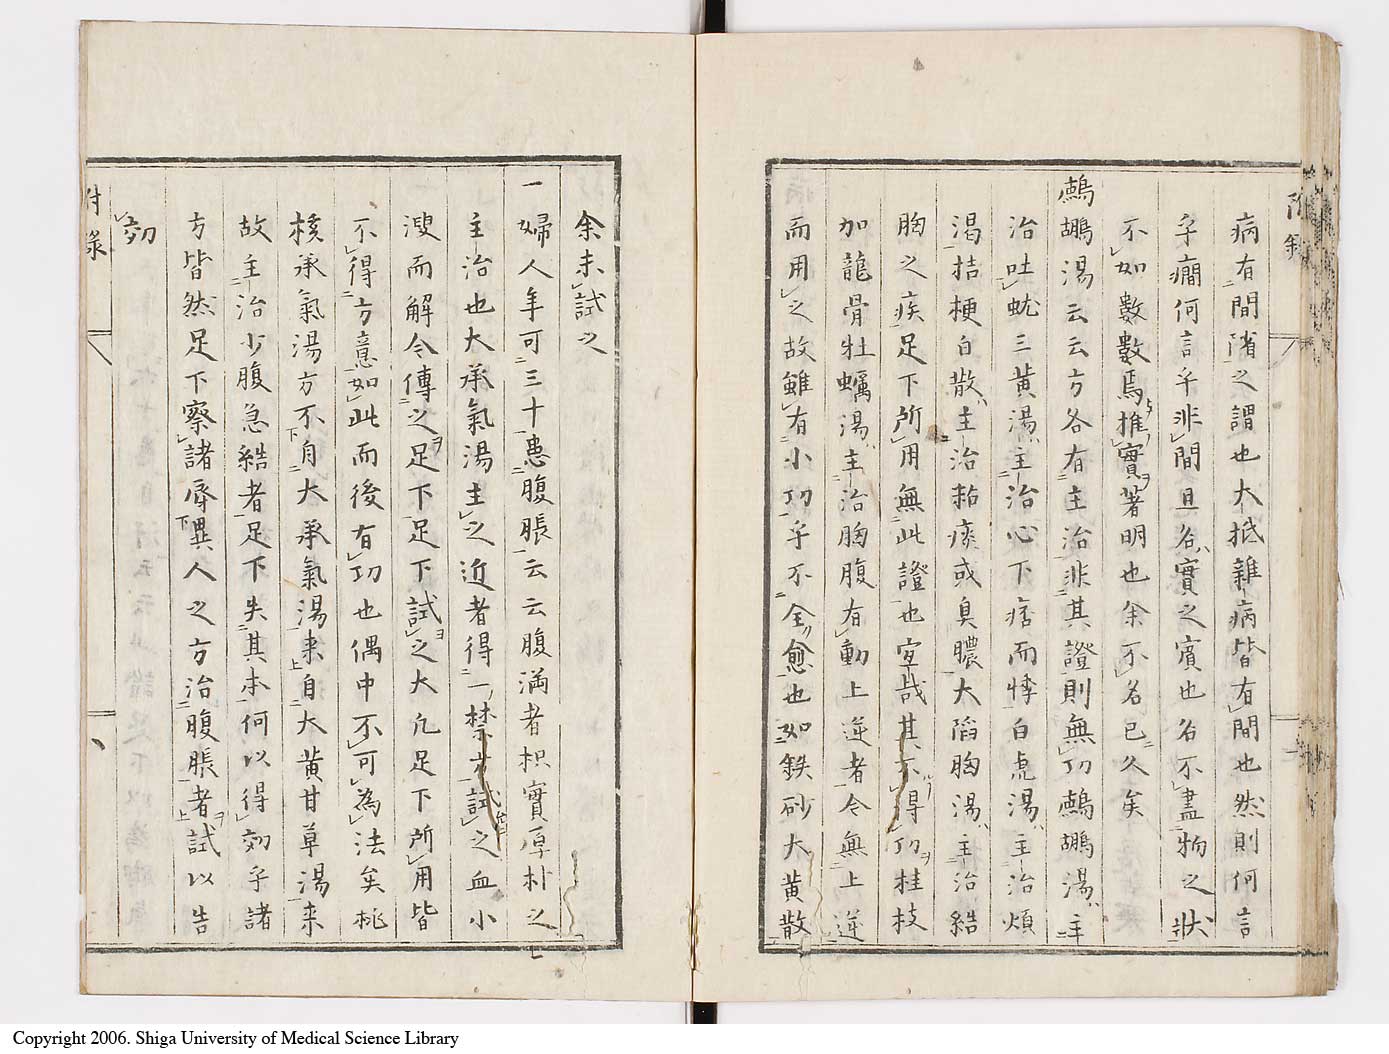 附録
病有間隙之謂也大抵雜病皆有間也然則何言
乎癇何言乎非間且名實之賓也名不盡物之状
不如數數焉推實著明也余不名已久矣
鷓鴣湯云云方各有主治非其證則無功鷓鴣湯主
治吐蚘三黄湯主治心下痞而悸白虎湯主治煩
渇桔梗白散主治粘痰或臭膿大陷胸湯主治結
胸之疾足下所用無此證也宜哉其不得功桂枝
加龍骨牡蠣湯主治胸腹有動上逆者今無上逆
而用之故雖有小功乎不全愈也如鉄砂大黄散
余未試之
一婦人年可三十患腹脹云云腹満者枳實厚朴之
主治也大承氣湯主之近者得一禁方試之血小
溲而解今傳之足下足下試之大凡足下所用皆
不得方意如此而後有功也偶中不可為法矣桃
核承氣湯方不自大承氣湯来自大黄甘草湯来
故主治少腹急結者足下失其本何以得効乎諸
方皆然足下察諸辱異人之方治腹脹者試以告
効
付録
Copyright 2006. Shiga University of Medical Science Library